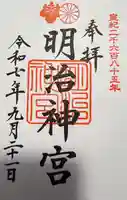 皇紀二千六百八十五年
奉拝
明治神宮
令和七年九月二十一日